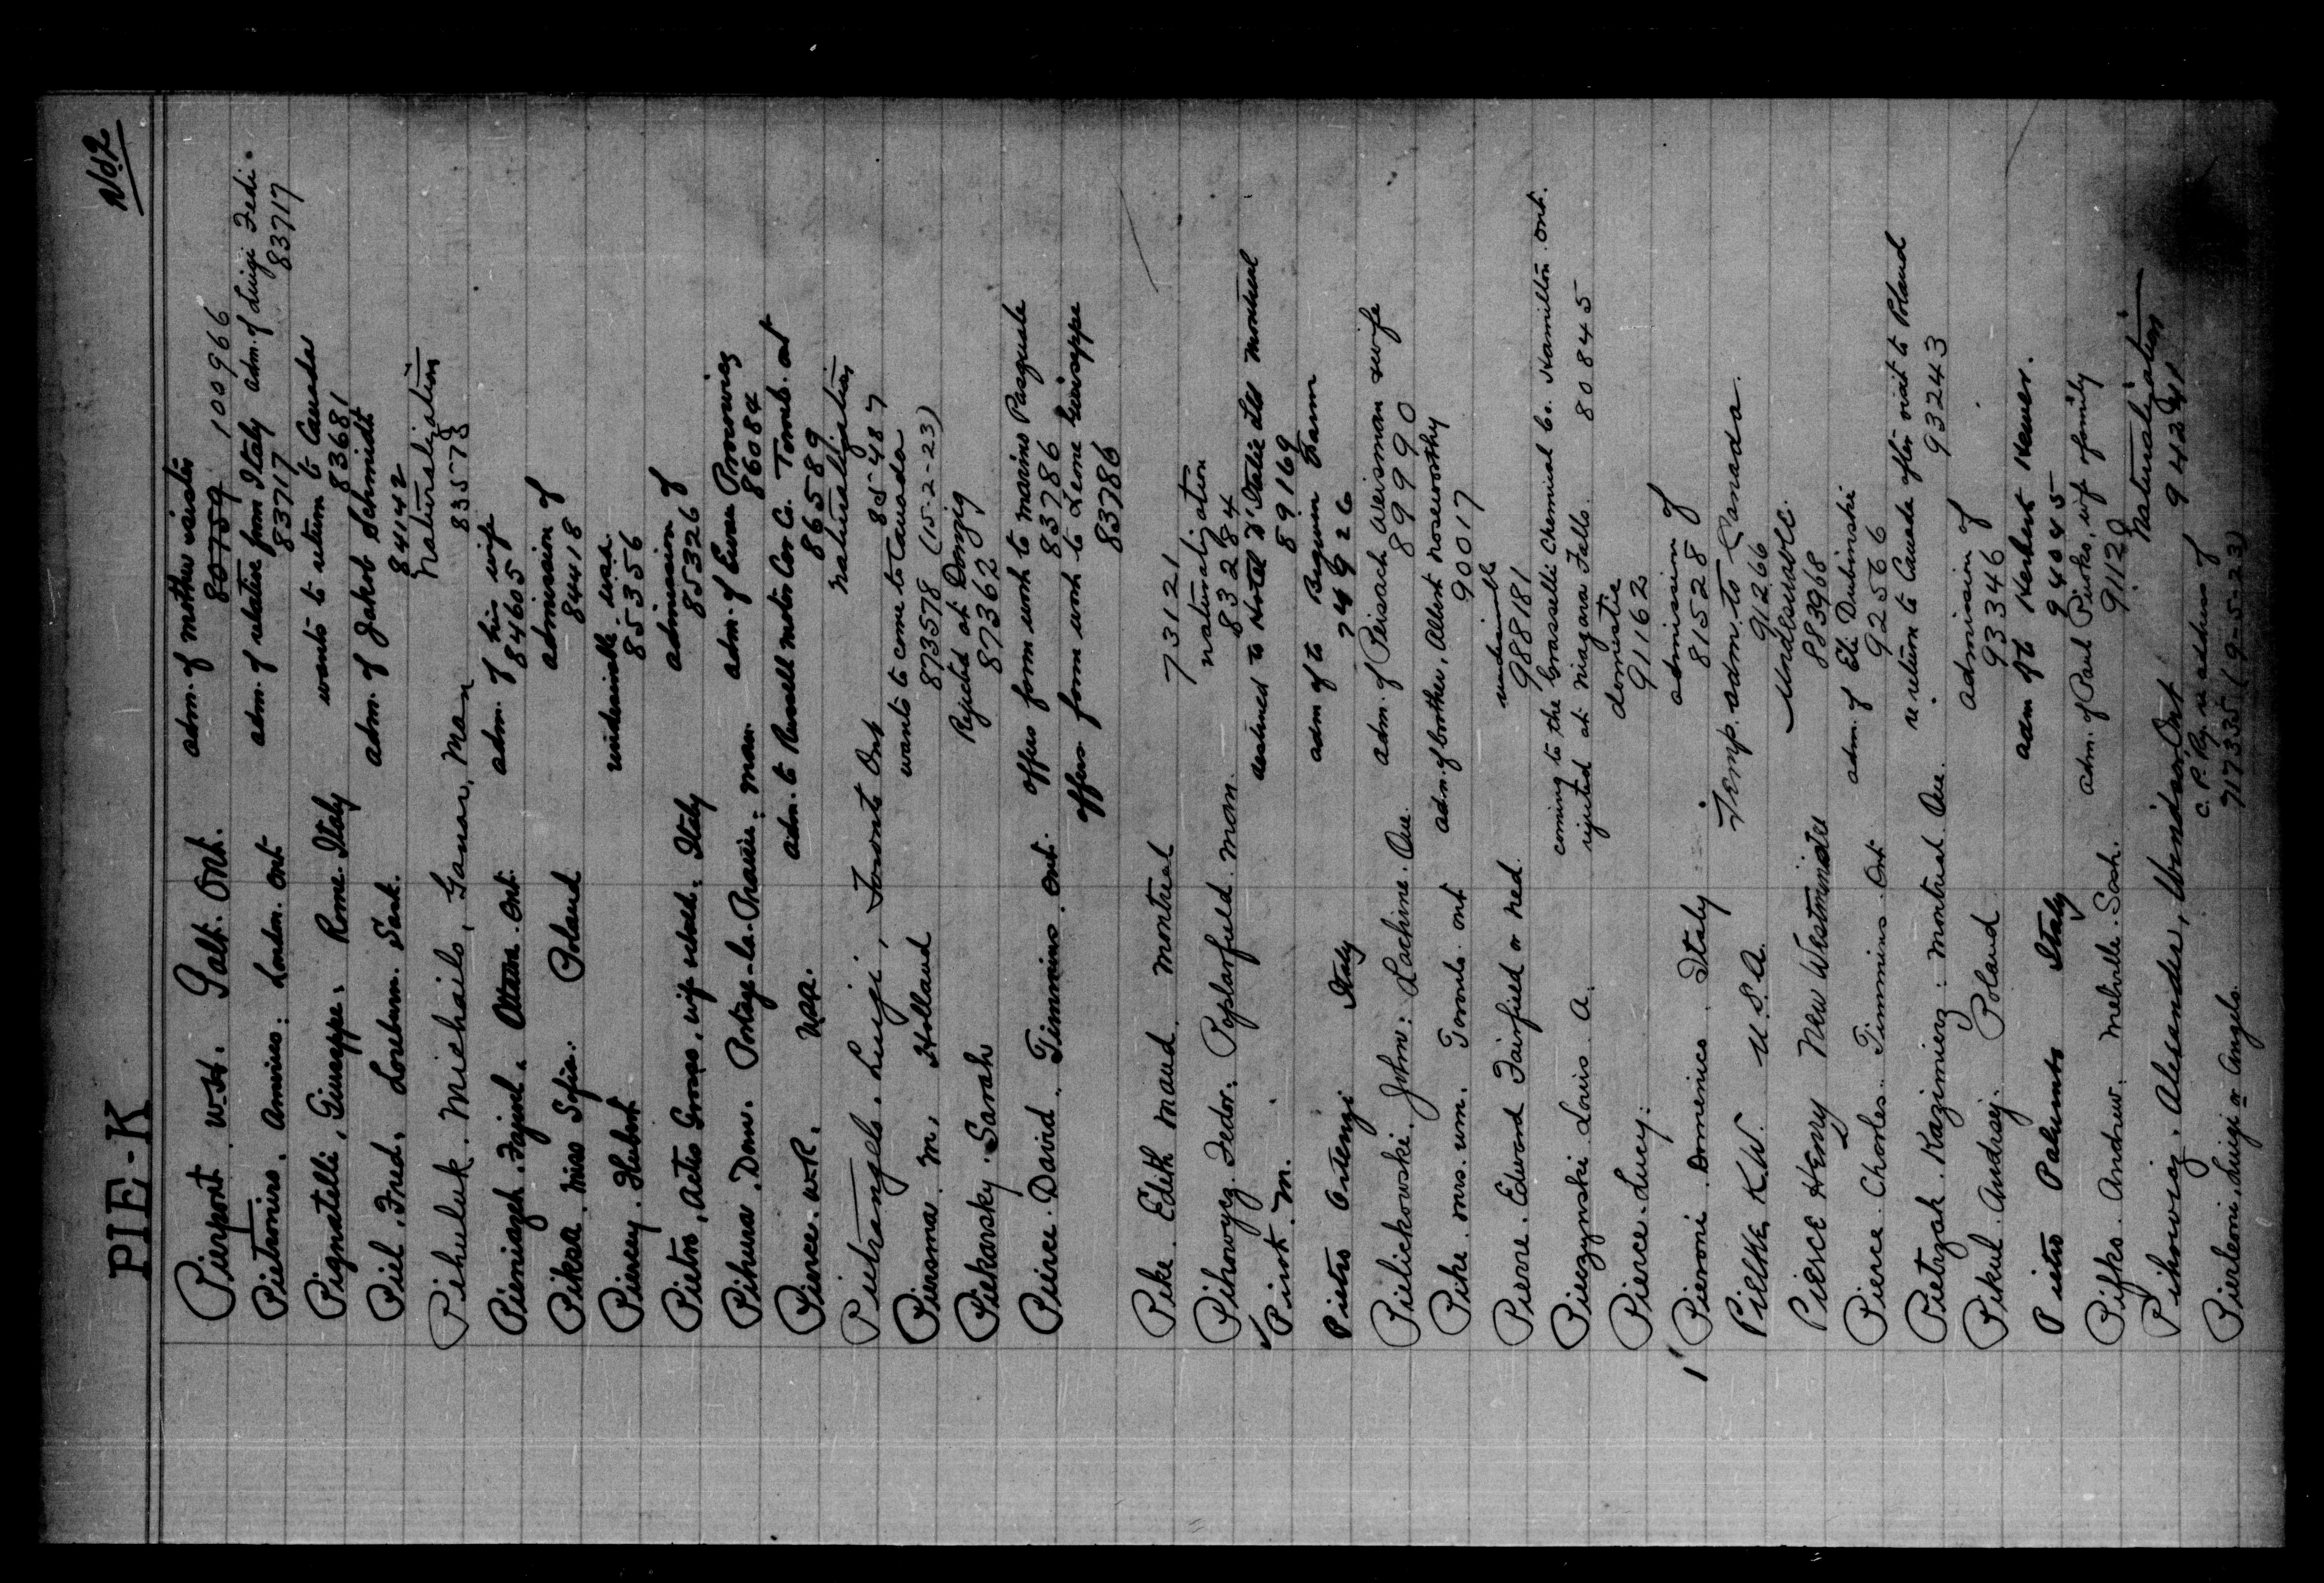 PIE-K
No 2
Pierpont W.H. Galt. Ont. adm. of mother sister
80759 100966
Pietramiro, Americo. London. Ont adm. of relative from Italy adm. of Luigi Fedi.
83717 83717
Pignatelli, Giuseppe. Rome Italy wants to return to Canada
83681
Piel, Fred. Loreburn. Sask. adm. of Jakob Schmidt
84142
Pihuluk. Michailo, Man Naturalization
83573
Ottawa. Ont. adm. of his wife
84605
Piksa. Miss Sofia. Poland admission of
84418
Piercey. Hubert undesirable
85356
Pietro, wife Italy admission of
85326
Pihura, Dom. Portage-la-Prairie. Man. adm. of
86084
Pierce. W.R. adm. to Russell Motor Car Co. Toronto. Ont
86589
Pietrangelo. Luigi, Toronto Ont Naturalization
85487
Piersma. M, Holland wants to come to Canada
873578 (15-2-23)
Piekarsky. Sarah Rejected at Danzig
87362
Pierce. David. Timmins. Ont. offers farm work to Marino Pasquale
83786
offers farm work to Leone Guiseppe
83786
Pike. Edith Maud. Montreal 73121
Pihowycz. Fedor. Poplarfield. Man. naturalization
83284
Pirok. M. destined to Hotel D'Italie Montreal
89169
Pietro Ortenzi Italy adm of to Farm
Pielichowski. John. Lachine. Que. adm. of Peisach Weisman wife
89990
Pike. Mrs. Wm. Toronto. Ont adm. of brother, Albert Noseworthy
90017
Pierre. Edward Fairfield or Ned. undesirable
988181
Pieczynski. Louis. A. coming to the Grasselli Chemical Co. Hamilton. Ont.
rejected at Niagara Falls. 80845
Pierce. Lucy. domestic
91162
Pieroni. Domenico. Italy admission of
81528
Pielske, K.W. U.S.A. Temp. adm. to Canada.
91266
Pierce Henry New Westminster Undesirable.
883968
Pierce. Charles. Timmins. Ont adm. of Eli Dubinski
92566
Pietrzak. Kazimierz. Montreal. Que. re return to Canada after visit to Poland
93243
Pikul. Andrzej. Poland admission of
93346
Pietro Palumbo Italy adm of to Herbert
94045
Pifko. Andrew. Melville. Sask. adm. of Paul wife family
91128
Pihowicz. Alexander, Windsor, Ont Naturalization
Pierleoni, Luigi or Angelo. C.P.Ry. re address of
717335 (9-5-23)